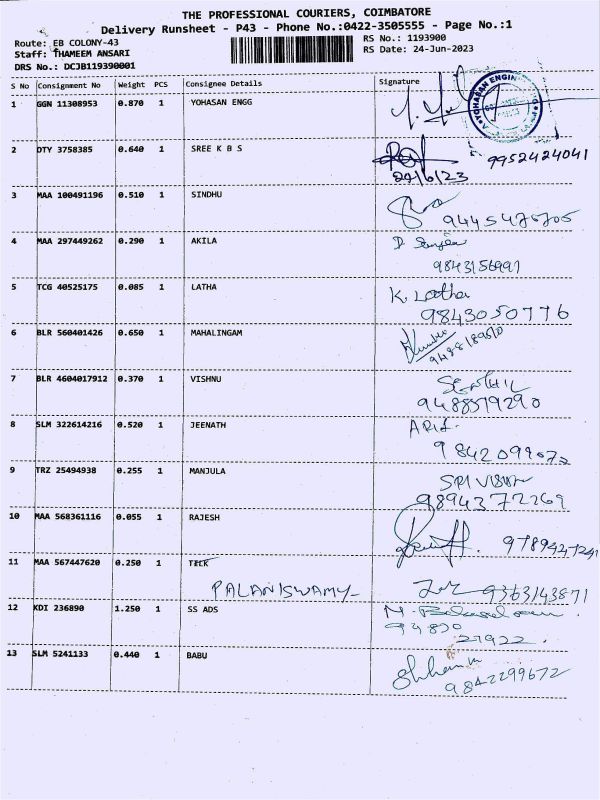 THE PROFESSIONAL COURIERS, COIMBATORE
Delivery Runsheet - P43 - Phone No.:0422-3505555 - Page No.:1
Route: EB COLONY-43 RS No.: 1193900
Staff: THAMEEM ANSARI RS Date: 24-Jun-2023
DRS No.: DCJB119390001
S No Consignment No Weight PCS Consignee Details Signature
1 GGN 11308953 0.870 1 YOHASAN ENGG
2 DTY 3758385 0.640 1 SREE K B S 9952424041
24/6/23
3 MAA 100491196 0.510 1 SINDHU
9445475705
4 MAA 297449262 0.290 1 AKILA
9843156991
5 TCG 40525175 0.085 1 LATHA K. Latha
9843050776
6 BLR 560401426 0.650 1 MAHALINGAM
7 BLR 4604017912 0.370 1 VISHNU SENTHIL
9488579290
8 SLM 322614216 0.520 1 JEENATH
9842099072
9 TRZ 25494938 0.255 1 MANJULA
9894372269
10 MAA 568361116 0.055 1 RAJESH 9789427241
11 MAA 567447620 0.250 1 TILK
PALANISWAMY 9363143871
12 KDI 236890 1.250 1 SS ADS
94870
27922.
13 SLM 5241133 0.440 1 BABU
9842299672